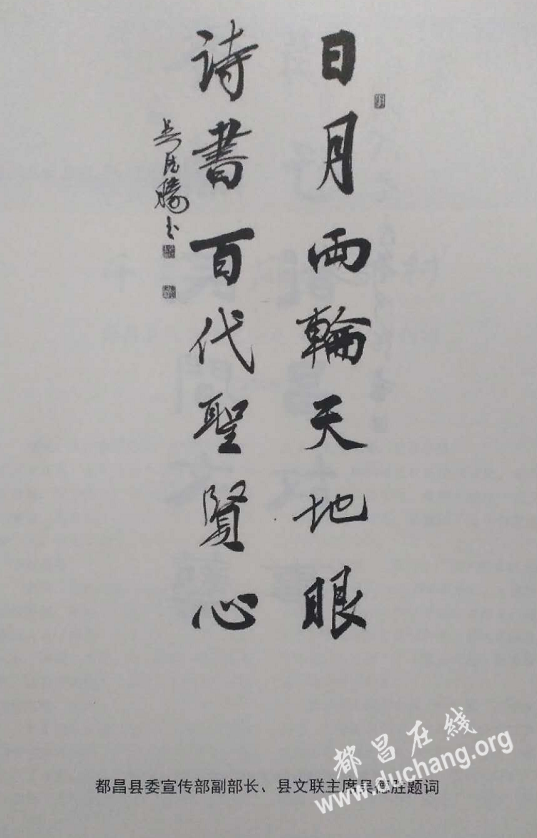 日月兩輪天地眼
诗書百代聖賢心
吴德勝书
都昌在线
www.duchang.org
都昌县委宣传部副部长、县文联主席吴德胜题词